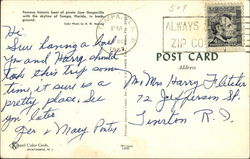 Famous historic boat of pirate Jose Gasparilla
with the skyline of Tampa, Florida, in back-
ground.
Color Photo by
Hi.
Sure having a
You and Harry should
take this trip some
time, it sure is a
pretty place. See
you later
& Mary Pats
ALWAYS
ZIP CO
POST CARD
Address
Mr & Mrs Harry Fletcher
72 Jefferson St.
R. I
Color Cards